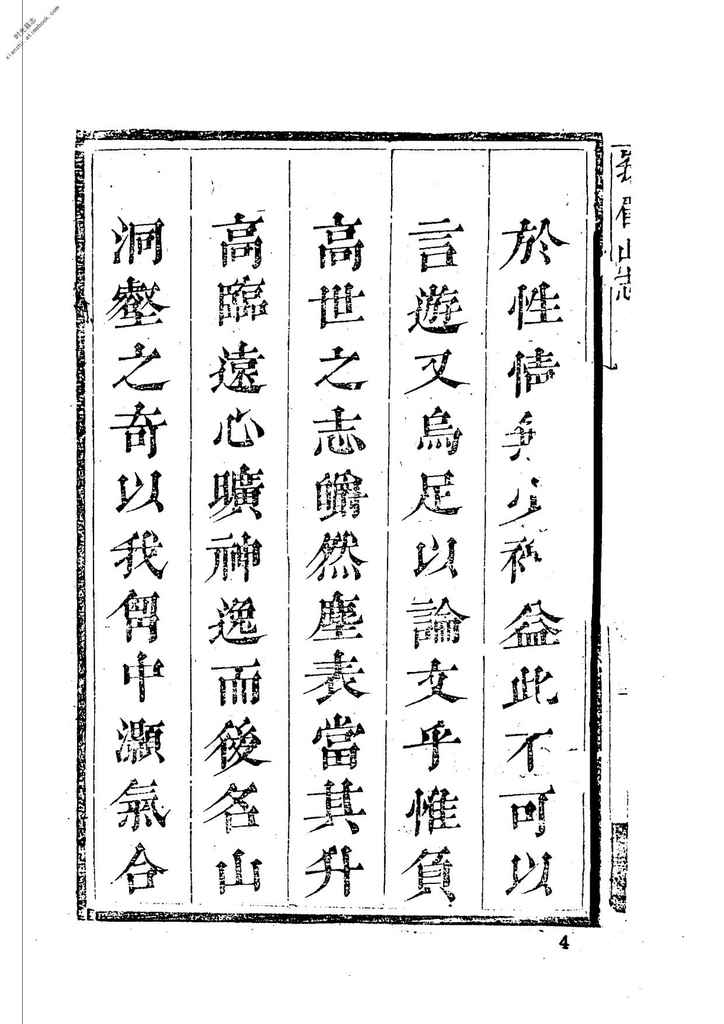 於性情毫少裨益此不可以
言遊又烏足以論文乎惟負
高世之志皭然塵表當其升
高臨遠心曠神逸而後名山
洞壑之奇以我胷中灝氣合
眉山志
4